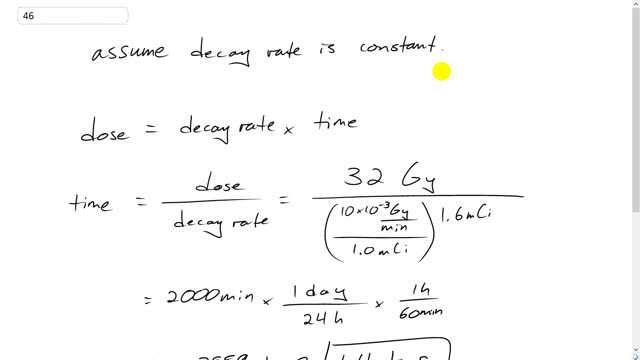 46
assume decay rate is constant.
dose = decay rate × time
time = dose / decay rate = 32 Gy / ((10×10⁻³ Gy/min / 1.0 mCi) 1.6 mCi)
= 2000 min × 1 day / 24 h × 1h / 60min